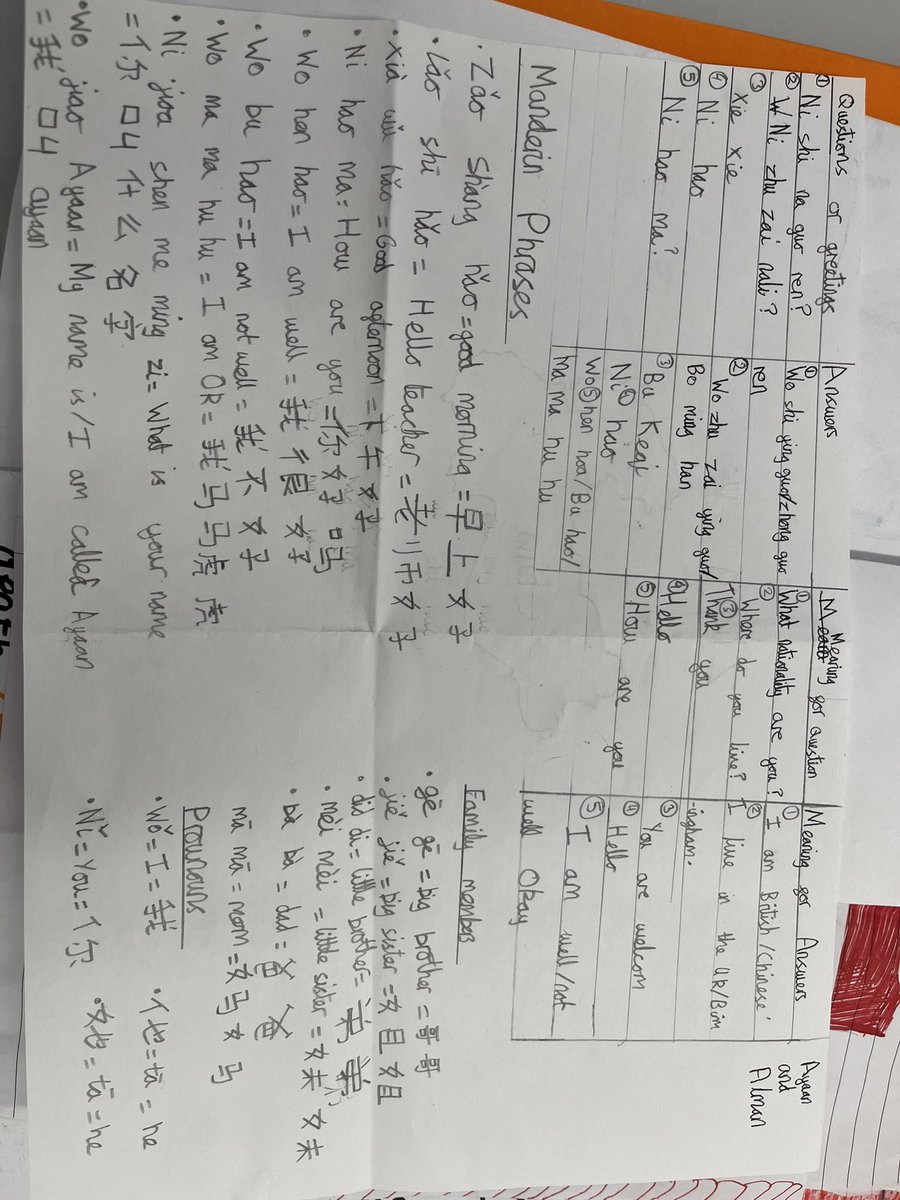 Ayaan
and
Alman
Questions or greetings
① Ni shi na guo ren?
② Ni zhu zai nali?
③ Xie xie
④ Ni hao
⑤ Ni hao ma?
Answers
① Wo shi ying guo/zhong guo
ren
② Wo zhu zai ying guo/
Bo ming han
③ Bu Keqi
④ Ni hao
Wo ⑤ hen hoa/Bu hao/
ma ma hu hu
Mearing gor question
① What nationality are you?
② Where do you live?
③ Thank you
④ Hello
⑤ How are you
Mearing gor Answers
① I am British/Chinese.
② I live in the UK/Birm
-ingham.
③ You are welcom
④ Hello
⑤ I am well/not
well Okay
Manderin Phrases
• Zǎo shàng hǎo = good morning = 早上好
• Lǎo shī hǎo = Hello teacher = 老师好
• xià wǔ hǎo = Good agternoon = 下午好
• Ni hao ma = How are you = 你好吗
• Wo hen hao = I am well = 我很好
• Wo bu hao = I am not well = 我不好
• Wo ma ma hu hu = I am OK = 我马马虎虎
• Ni jioa shen me ming zi = What is your name
= 你叫什么名字
• Wo jiao Ayaan = My name is/I am called Ayaan
= 我叫 ayaan
Family members
• gē gē = big brother = 哥哥
• jiě jiě = big sister = 姐姐
• dìd di = little brother = 弟弟
• mèi mèi = little sister = 妹妹
• bà bà = dad = 爸爸
mā mā = mom = 妈妈
Prounouns
• Wǒ = I = 我
• Nǐ = You = 你
• 他 = tā = he
• 她 = tā = he